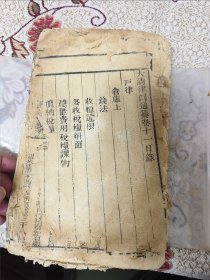 大清律例通纂卷十一目錄
戶律
倉庫上
錢法
收糧違限
多收稅糧斛面
隱匿費用稅糧課物
攬納稅糧